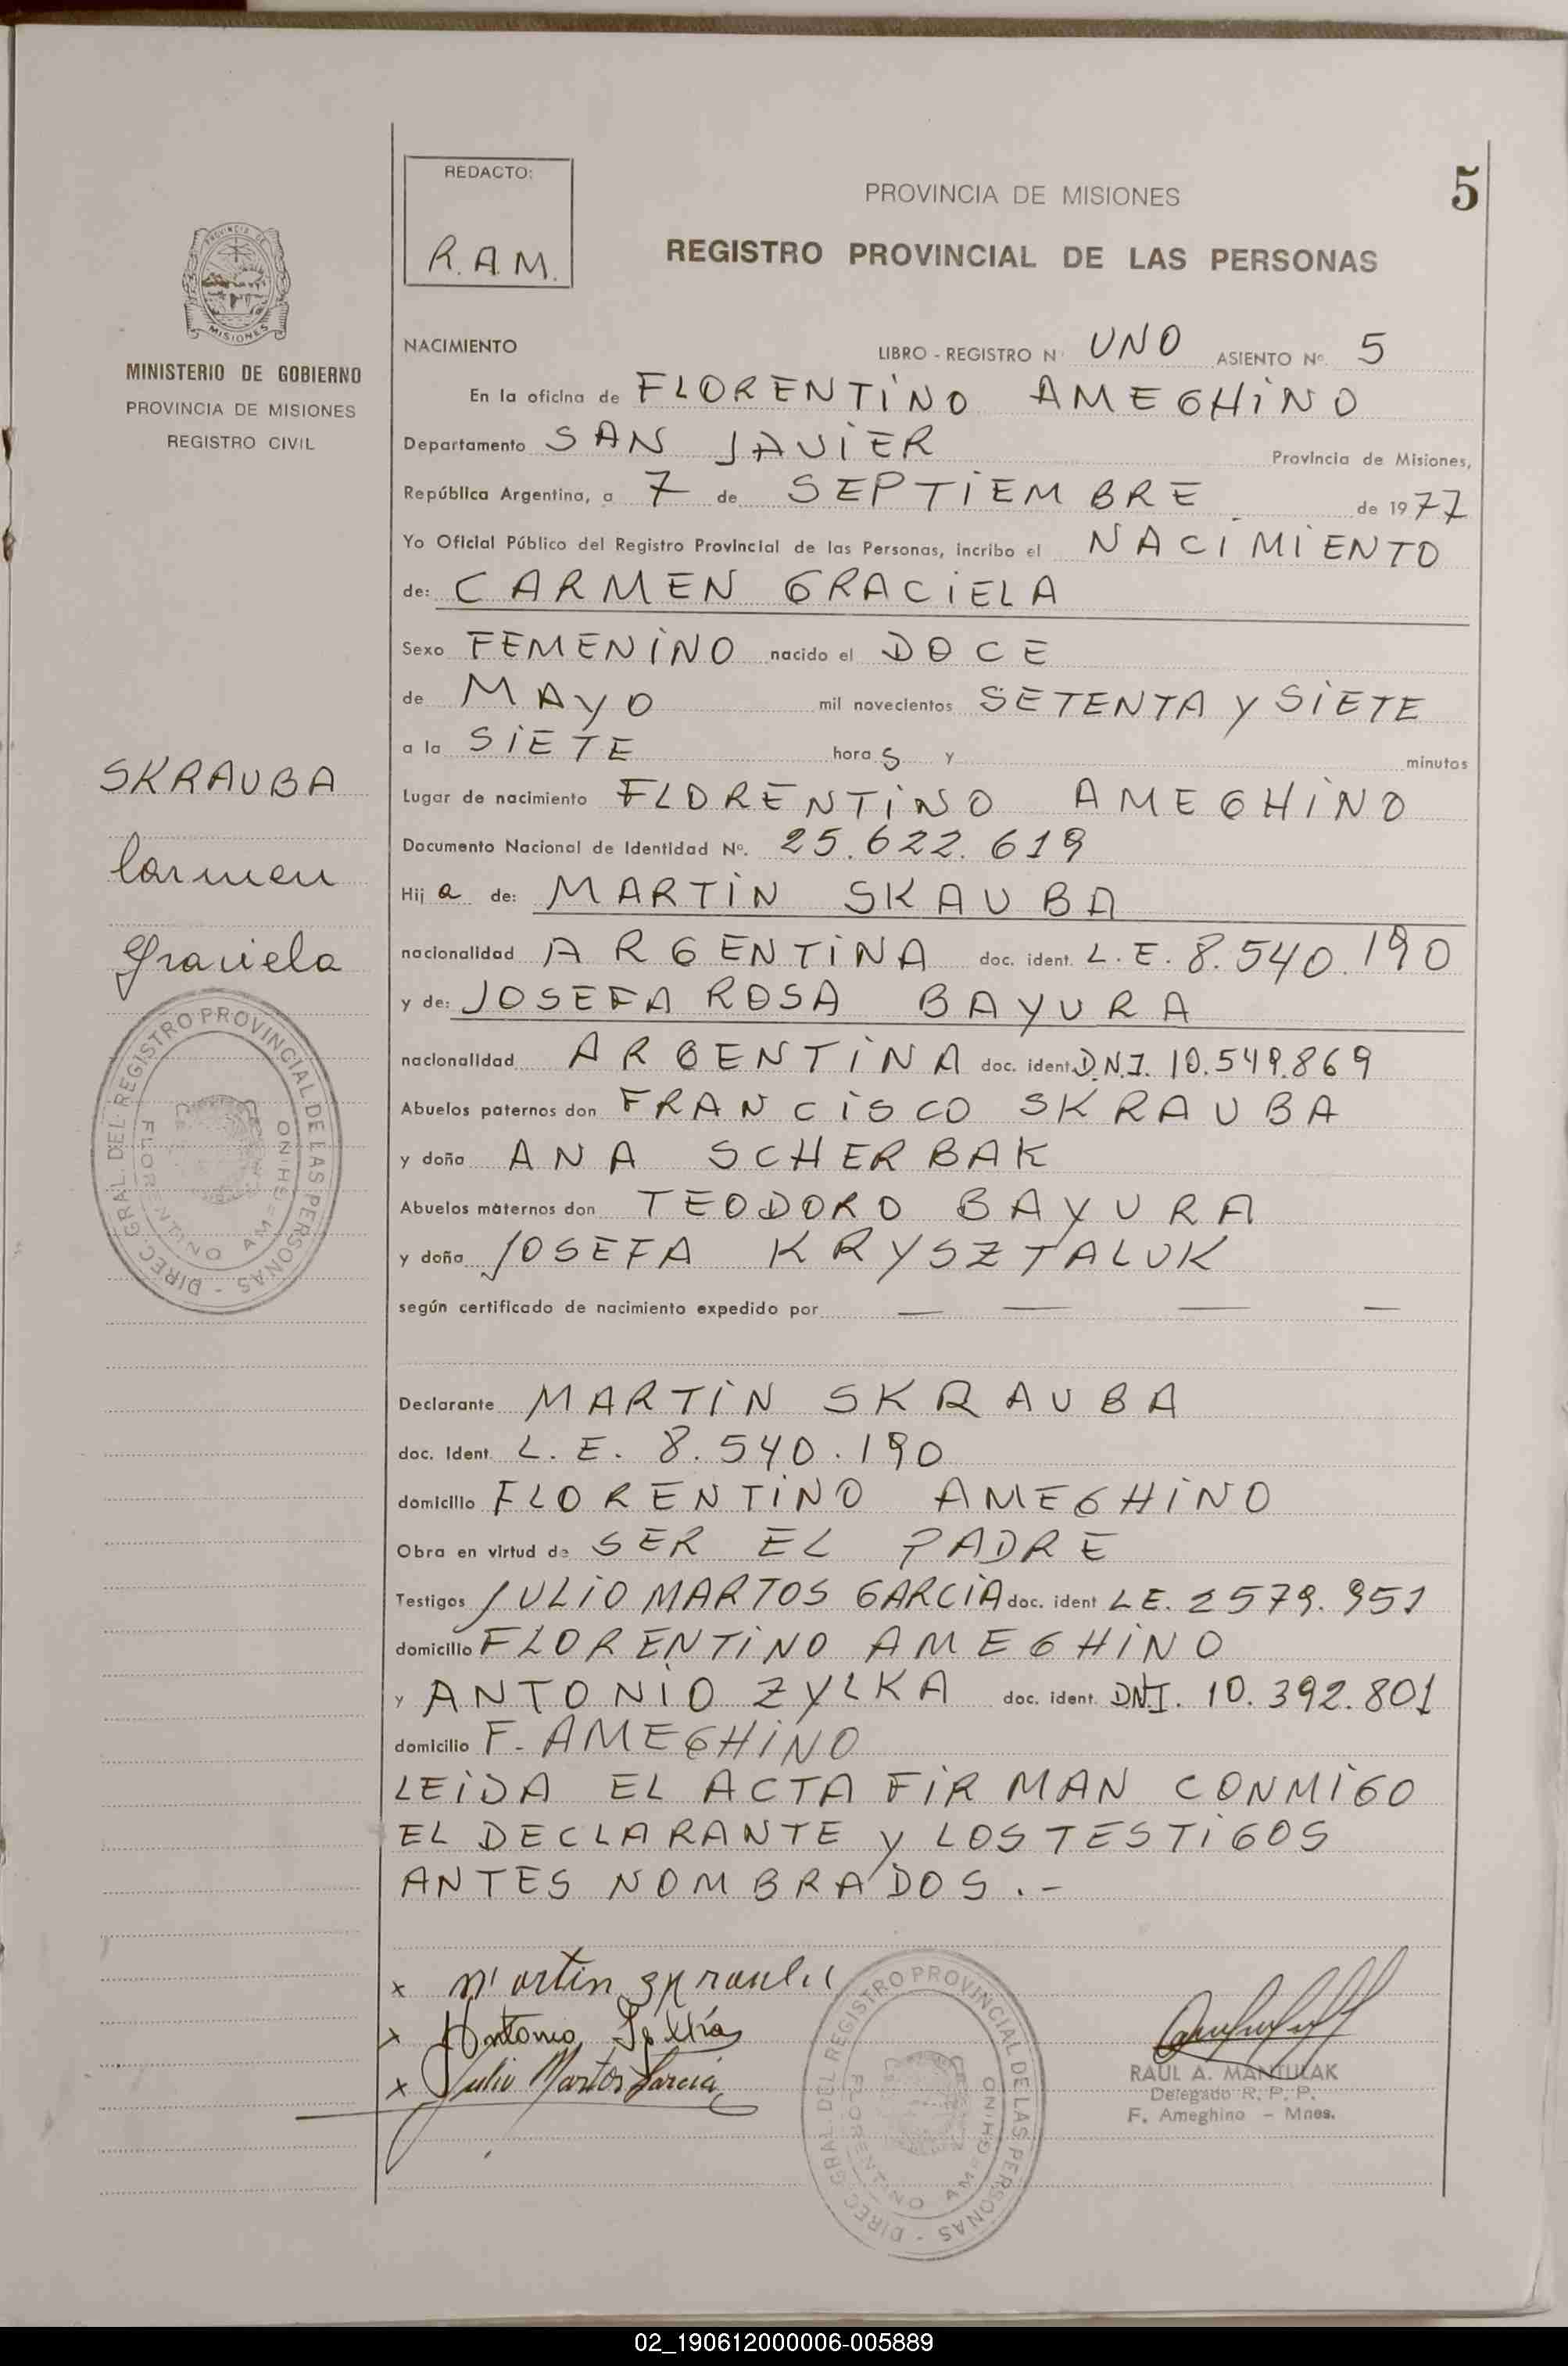 5
REDACTO:
R.A.M.
PROVINCIA DE MISIONES
REGISTRO PROVINCIAL DE LAS PERSONAS
MISIONES
MINISTERIO DE GOBIERNO
PROVINCIA DE MISIONES
REGISTRO CIVIL
NACIMIENTO LIBRO - REGISTRO N° UNO ASIENTO N° 5
En la oficina de FLORENTINO AMEGHINO
Departamento SAN JAVIER Provincia de Misiones,
República Argentina, a 7 de SEPTIEMBRE de 1977
Yo Oficial Público del Registro Provincial de las Personas, incribo el NACIMIENTO
de: CARMEN GRACIELA
Sexo FEMENINO nacido el DOCE
de MAYO mil novecientos SETENTA y SIETE
a la SIETE horas y minutos
SKRAUBA
Carmen
Graciela
Lugar de nacimiento FLORENTINO AMEGHINO
Documento Nacional de Identidad N°. 25.622.619
Hija de: MARTIN SKAUBA
nacionalidad ARGENTINA doc. ident. L.E. 8.540.190
y de: JOSEFA ROSA BAYURA
nacionalidad ARGENTINA doc. ident. D.N.I. 10.549.869
Abuelos paternos don FRANCISCO SKRAUBA
y doña ANA SCHERBAK
Abuelos maternos don TEODORO BAYURA
y doña JOSEFA KRYSZTALUK
según certificado de nacimiento expedido por — — — —
DIREC. GRAL. DEL REGISTRO PROVINCIAL DE LAS PERSONAS -
FLORENTINO AMEGHINO
Declarante MARTIN SKRAUBA
doc. Ident. L.E. 8.540.190
domicilio FLORENTINO AMEGHINO
Obra en virtud de SER EL PADRE
Testigos JULIO MARTOS GARCIA doc. ident LE. 2579.951
domicilio FLORENTINO AMEGHINO
y ANTONIO ZYLKA doc. ident. DNI. 10.392.801
domicilio F. AMEGHINO
LEIDA EL ACTA FIRMAN CONMIGO
EL DECLARANTE y LOS TESTIGOS
ANTES NOMBRADOS.-
x Martin
x Antonio
x Julio Martos Garcia
DIREC. GRAL. DEL REGISTRO PROVINCIAL DE LAS PERSONAS -
FLORENTINO AMEGHINO
RAUL A. MANTULAK
Delegado R. P. P.
F. Ameghino - Mnes.
02_190612000006-005889